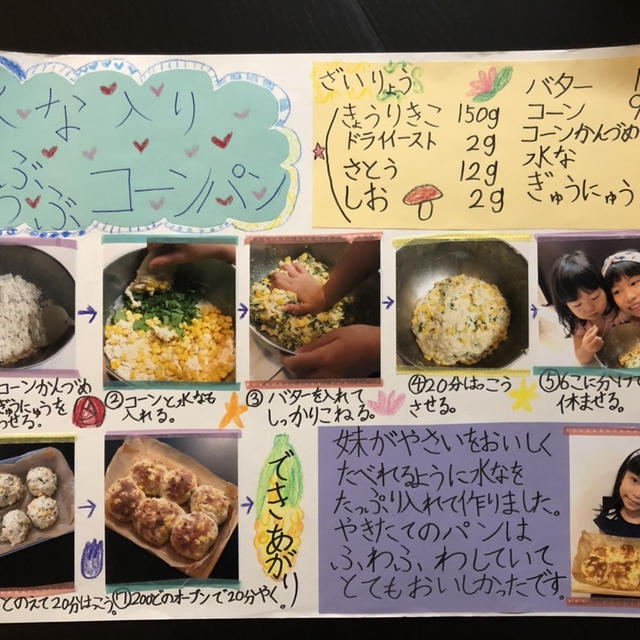 な入り
つぶつぶコーンパン
ざいりょう
きょうりきこ 150g
ドライイースト 2g
さとう 12g
しお 2g
バター 1
コーン
コーンかんづめ
水な
ぎゅうにゅう
コーンかんづめ
ぎゅうにゅうを
わせる。
②コーンと水なも
入れる。
③バターを入れて
しっかりこねる。
④20分はっこう
させる。
⑤6こに分け
休ませる。
とのえて20分はっこう。
⑦200どのオーブンで20分やく。
できあがり!
妹がやさいをおいしく
たべれるように水なを
たっぷり入れて作りました。
やきたてのパンは
ふわふわしていて
とてもおいしかったです。